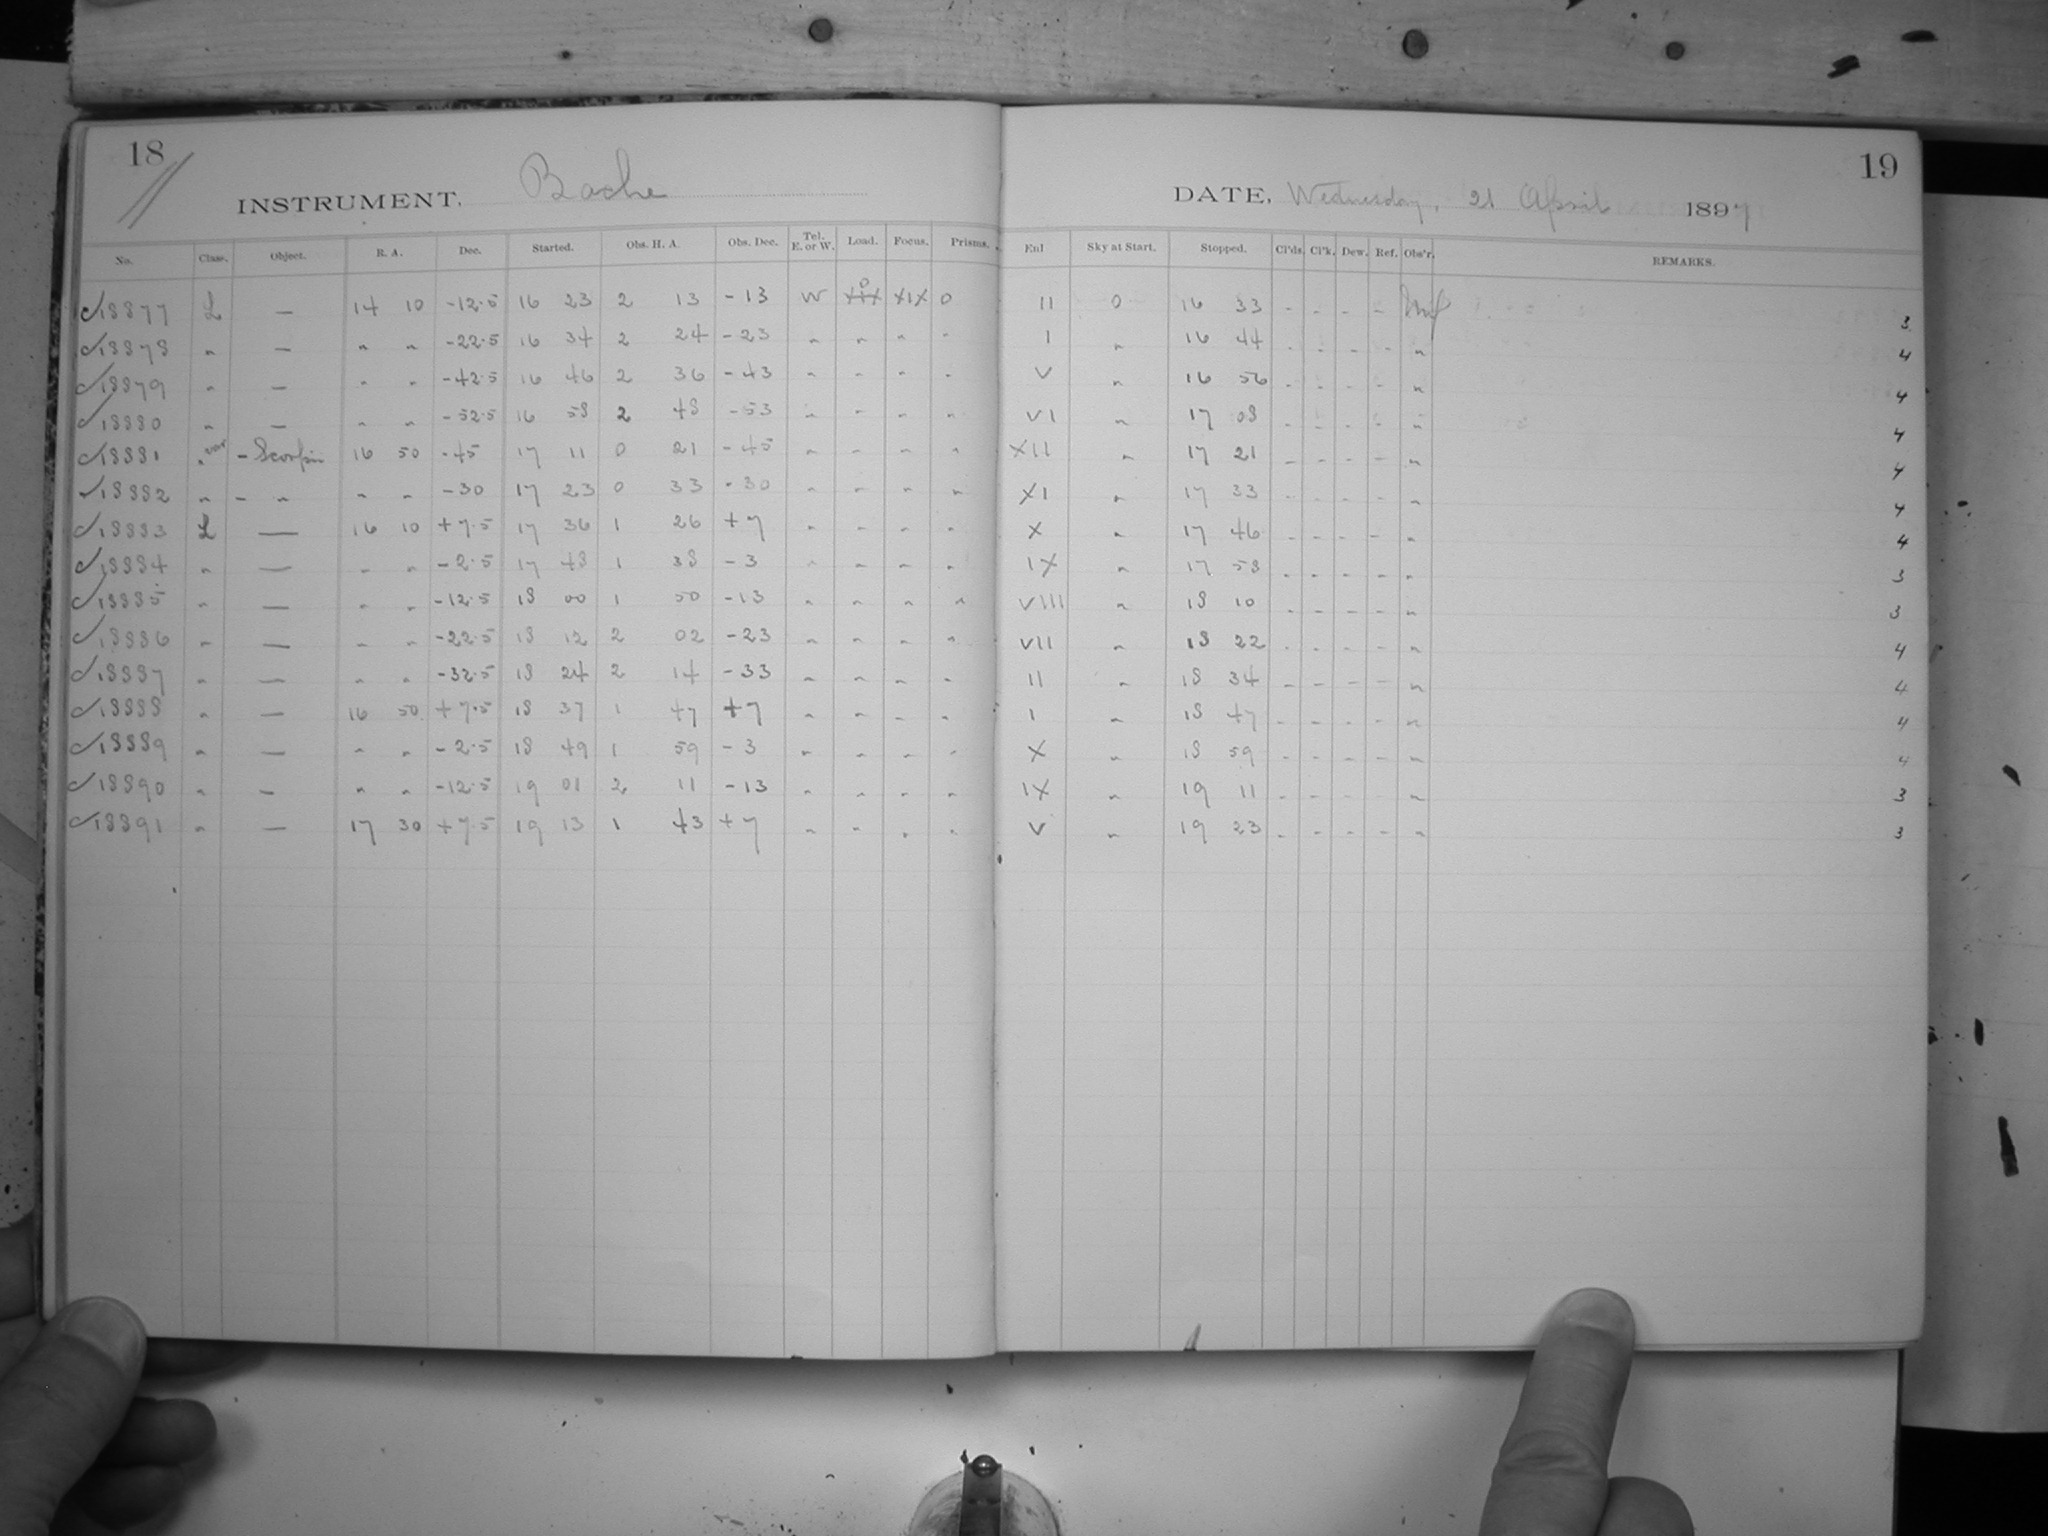 18 19
INSTRUMENT, Bache DATE, Wednesday, 21 April 1897
No. Class. Object. R. A. Dec. Started. Obs. H. A. Obs. Dec. Tel. E. or W. Load. Focus. Prisms. Enl Sky at Start. Stopped. Cl'ds. Cl'k. Dew. Ref. Obs'r. REMARKS.
18877 L — 14 10 -12.5 16 23 2 13 -13 W 0 XIX 0 II 0 16 33 - - - - 3
18878 " — " " -22.5 16 34 2 24 -23 " " " " I " 16 44 - - - - " 4
18879 " — " " -42.5 16 46 2 36 -43 " " " " V " 16 56 - - - - " 4
18880 " — " " -52.5 16 58 2 48 -53 " " " " VI " 17 08 - - - - " 4
18881 " var - Scorpii 16 50 -45 17 11 0 21 -45 " " " " XII " 17 21 - - - - " 4
18882 " - " " " -30 17 23 0 33 -30 " " " " XI " 17 33 - - - - " 4
18883 L — 16 10 +7.5 17 36 1 26 +7 " " " " X " 17 46 - - - - " 4
18884 " — " " -2.5 17 48 1 38 -3 " " " " IX " 17 58 - - - - " 3
18885 " — " " -12.5 18 00 1 50 -13 " " " " VIII " 18 10 - - - - " 3
18886 " — " " -22.5 18 12 2 02 -23 " " " " VII " 18 22 - - - - " 4
18887 " — " " -32.5 18 24 2 14 -33 " " " " II " 18 34 - - - - " 4
18888 " — 16 50 +7.5 18 37 1 47 +7 " " " " I " 18 47 - - - - " 4
18889 " — " " -2.5 18 49 1 59 -3 " " " " X " 18 59 - - - - " 4
18890 " — " " -12.5 19 01 2 11 -13 " " " " IX " 19 11 - - - - " 3
18891 " — 17 30 +7.5 19 13 1 43 +7 " " " " V " 19 23 - - - - " 3